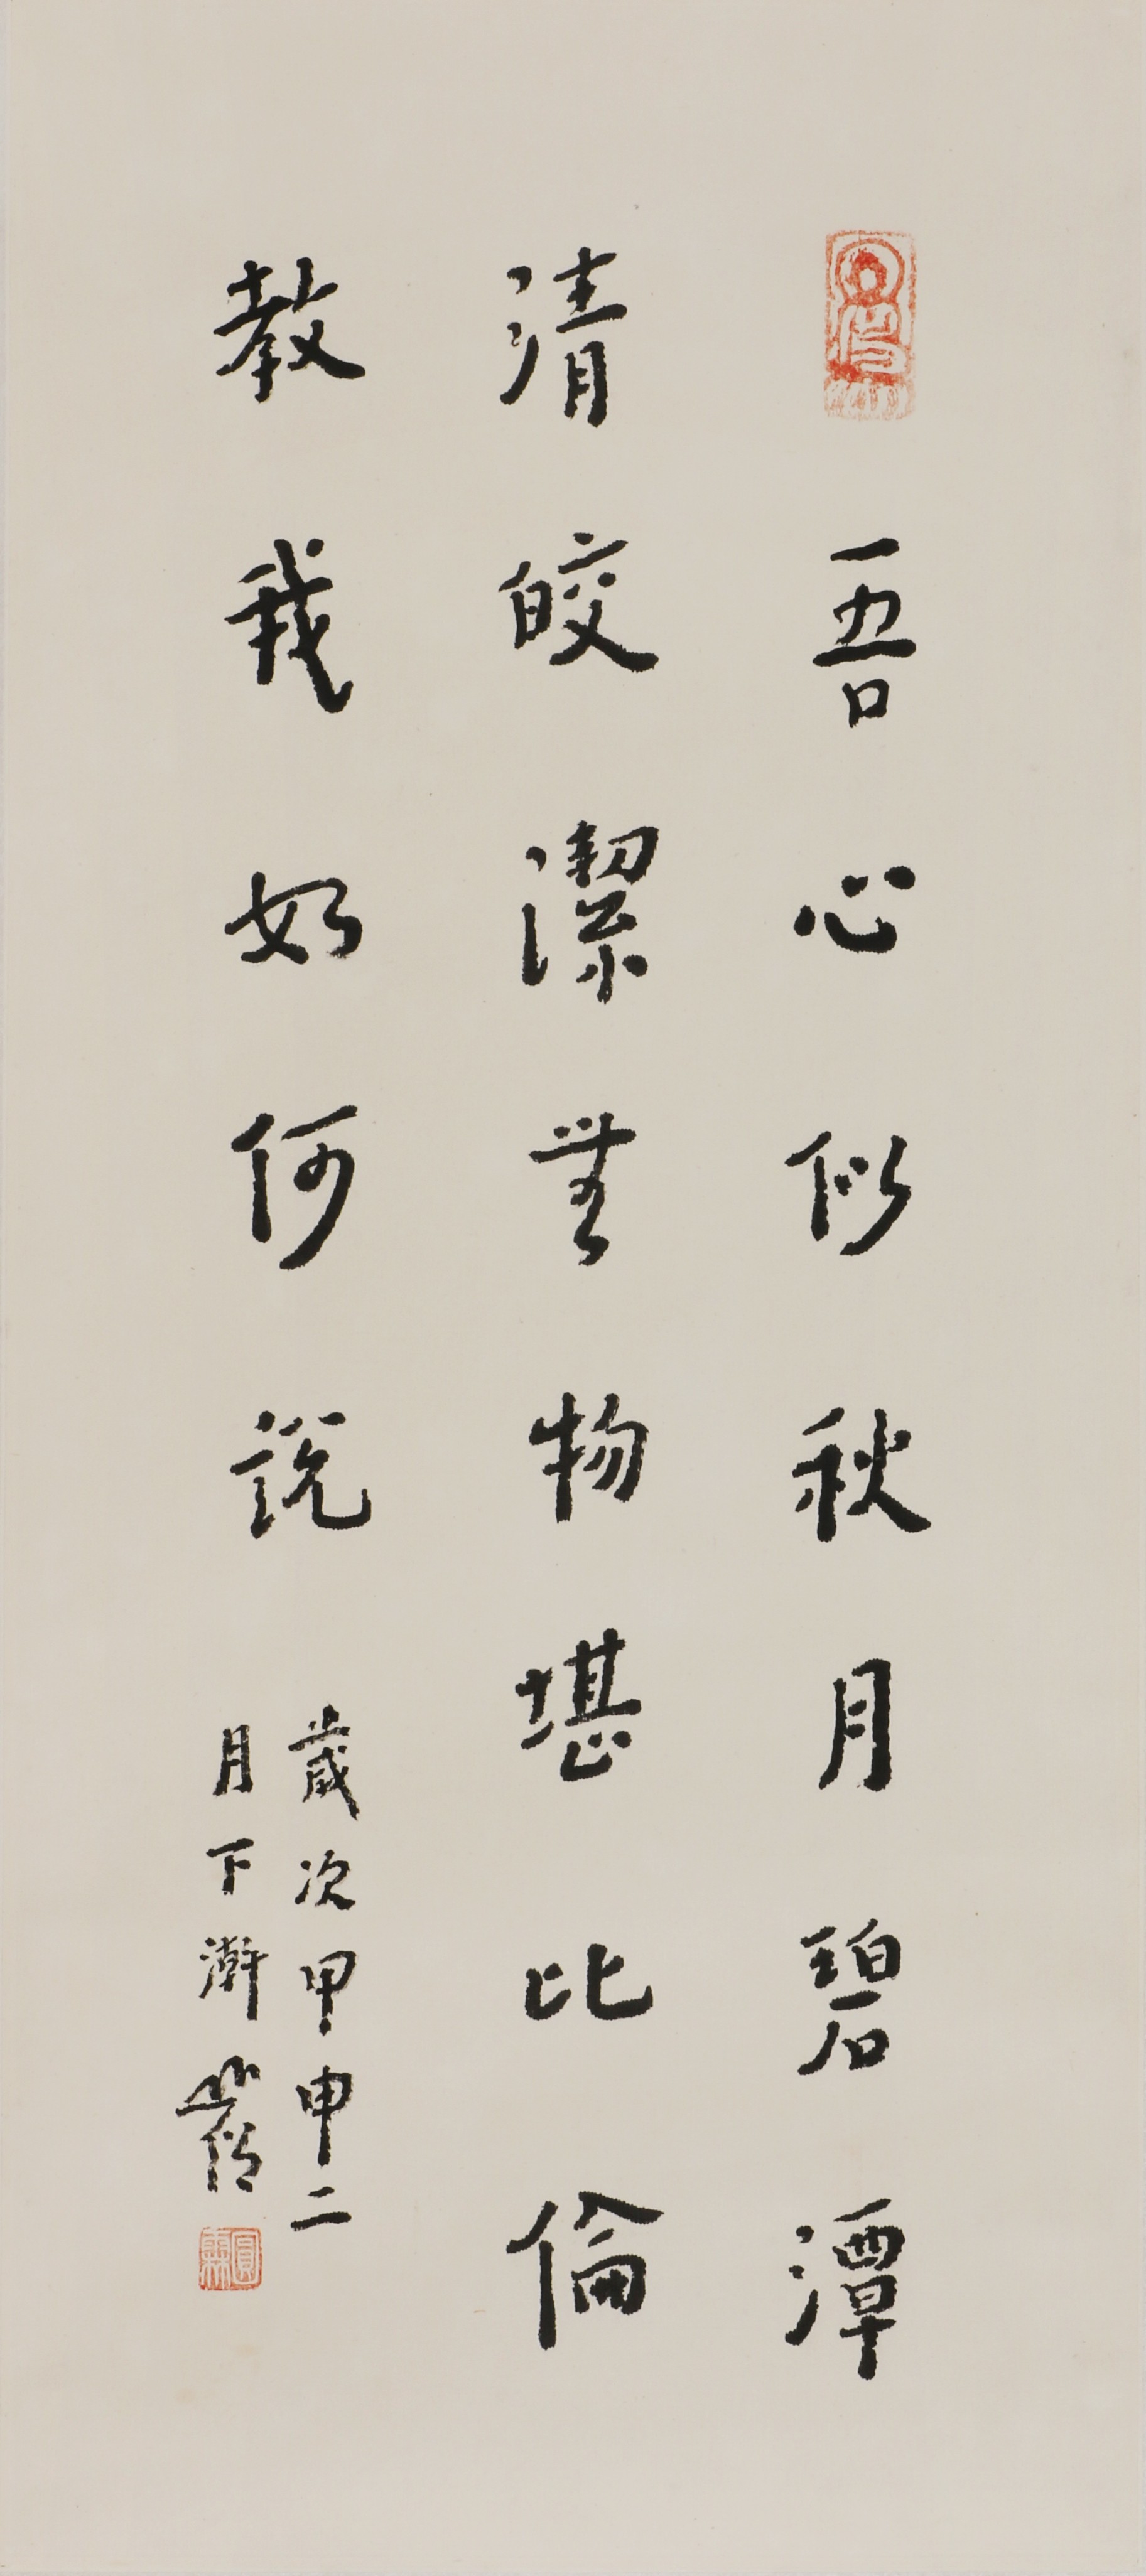 吾心似秋月碧潭
清皎潔無物堪比倫
教我如何說
歲次甲申二
月下澣
圓霖